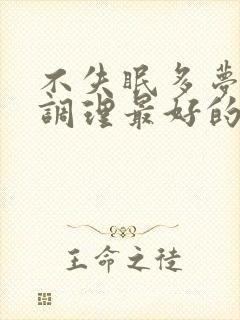 不失眠多夢
調理最好的
王命之徒